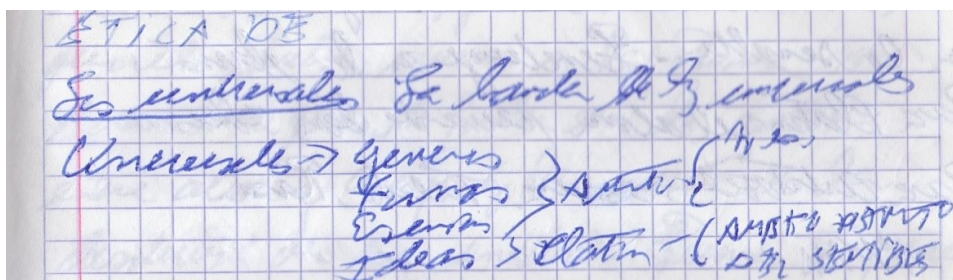 ETICA DE
Los universales La banda de los universales
Universales → géneros
Formas
Esencias
Ideas > Platón - AMBITO DISTINTO
DEL SENSIBLE